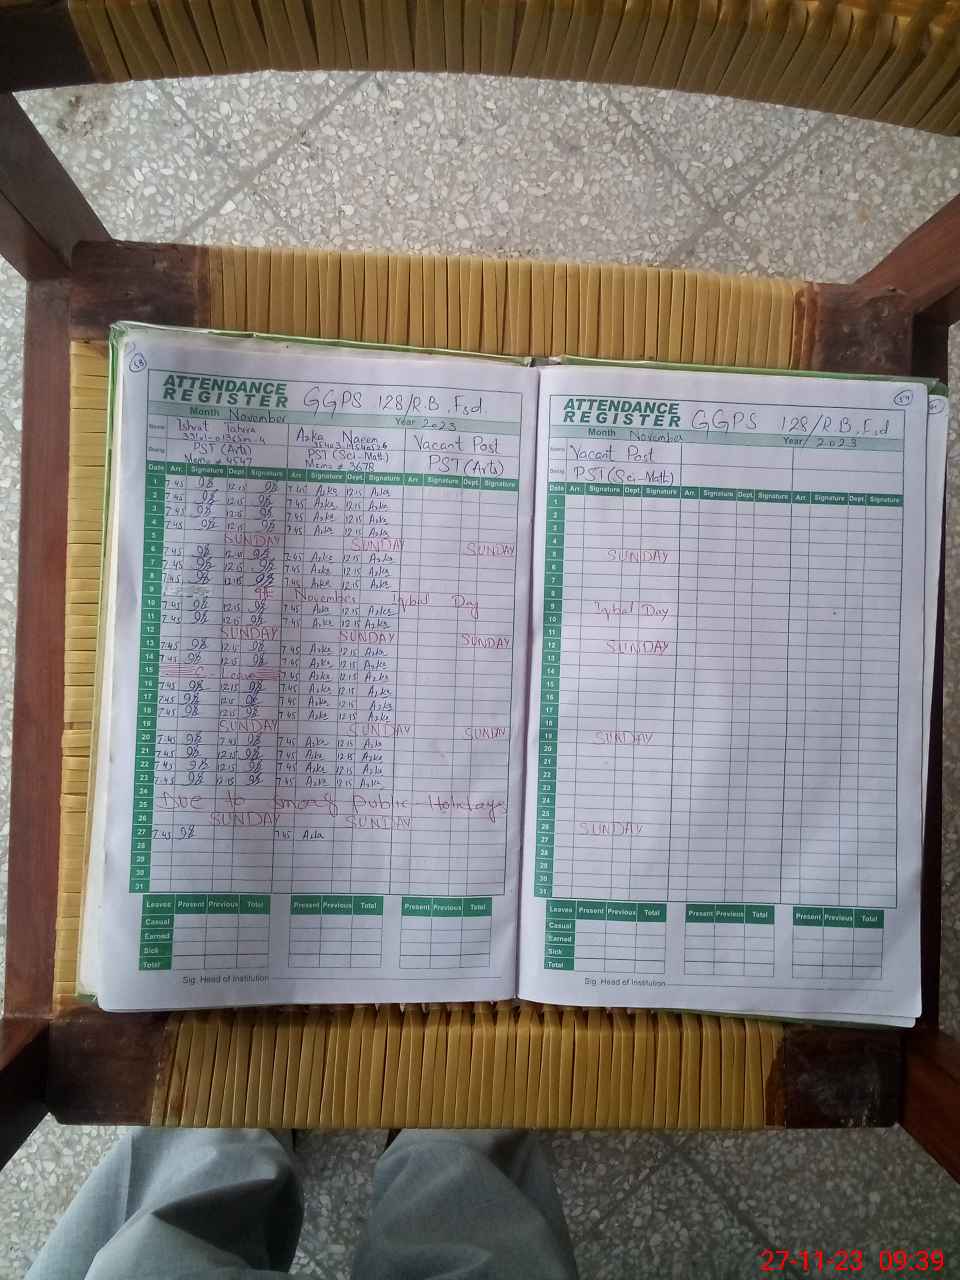 58
ATTENDANCE
REGISTER GGPS 128/R.B, Fsd.
Month November Year 2023
Name Ishrat Tahira Azka Naeem Vacant Post
Desig. PST (Arts) PST (Sci-Math) PST (Arts)
Memo # 4547 Memo # 3678
Date Arr. Signature Dept. Signature Arr. Signature Dept. Signature Arr. Signature Dept. Signature
1 7.45 12.15 7.45 Azka 12.15 Azka
2 7.45 12.15 7.45 Azka 12.15 Azka
3 7.45 12.15 7.45 Azka 12.15 Azka
4 7.45 12.15 7.45 Azka 12.15 Azka
5 SUNDAY SUNDAY SUNDAY
6 7.45 12.15 7.45 Azka 12.15 Azka
7 7.45 12.15 7.45 Azka 12.15 Azka
8 7.45 12.15 7.45 Azka 12.15 Azka
9 9th November Iqbal Day
10 7.45 12.15 7.45 Azka 12.15 Azka
11 7.45 12.15 7.45 Azka 12.15 Azka
12 SUNDAY SUNDAY SUNDAY
13 7.45 12.15 7.45 Azka 12.15 Azka
14 7.45 12.15 7.45 Azka 12.15 Azka
15 Leave 7.45 Azka 12.15 Azka
16 7.45 12.15 7.45 Azka 12.15 Azka
17 7.45 12.15 7.45 Azka 12.15 Azka
18 7.45 12.15 7.45 Azka 12.15 Azka
19 SUNDAY SUNDAY SUNDAY
20 7.45 7.45 7.45 Azka 12.15 Azka
21 7.45 12.15 7.45 Azka 12.15 Azka
22 7.45 12.15 7.45 Azka 12.15 Azka
23 7.45 12.15 7.45 Azka 12.15 Azka
24
25 Due to smog Public Holidays
26 SUNDAY SUNDAY
27 7.45 7.45 Azka
28
29
30
31
Leaves Present Previous Total Present Previous Total Present Previous Total
Casual
Earned
Sick
Total
Sig. Head of Institution
59
ATTENDANCE
REGISTER GGPS 128/R.B, Fsd
Month November Year 2023
Name Vacant Post
Desig. PST (Sci-Math)
Date Arr. Signature Dept. Signature Arr. Signature Dept. Signature Arr. Signature Dept. Signature
1
2
3
4
5 SUNDAY
6
7
8
9 Iqbal Day
10
11
12 SUNDAY
13
14
15
16
17
18
19 SUNDAY
20
21
22
23
24
25
26 SUNDAY
27
28
29
30
31
Leaves Present Previous Total Present Previous Total Present Previous Total
Casual
Earned
Sick
Total
Sig. Head of Institution
27-11-23 09:39